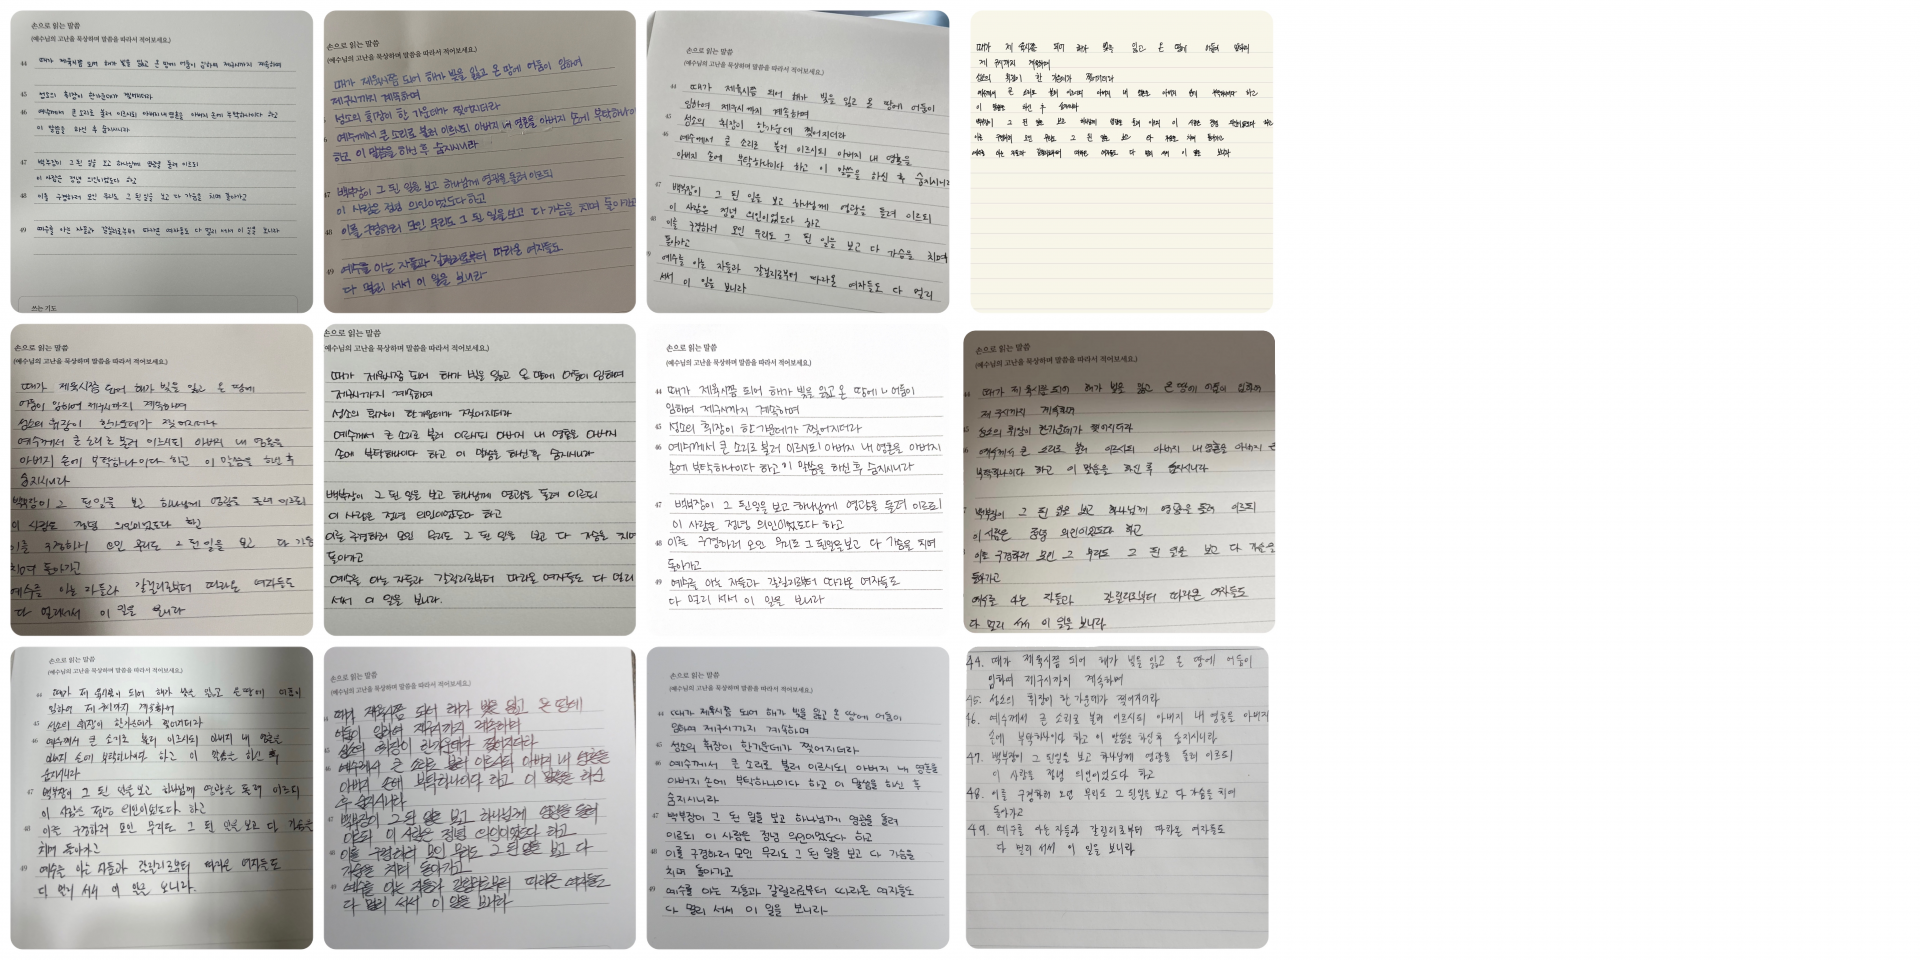 손으로 읽는 말씀
(예수님의 고난을 묵상하며 말씀을 따라서 적어보세요.)
44 때가 제육시쯤 되어 해가 빛을 잃고 온 땅에 어둠이 임하여 제구시까지 계속하며
45 성소의 휘장이 한가운데가 찢어지더라
46 예수께서 큰 소리로 불러 이르시되 아버지 내 영혼을 아버지 손에 부탁하나이다 하고
이 말씀을 하신 후 숨지시니라
47 백부장이 그 된 일을 보고 하나님께 영광을 돌려 이르되
이 사람은 정녕 의인이었도다 하고
48 이를 구경하러 모인 무리도 그 된 일을 보고 다 가슴을 치며 돌아가고
49 예수를 아는 자들과 갈릴리로부터 따라온 여자들도 다 멀리 서서 이 일을 보니라
쓰는 기도
손으로 읽는 말씀
(예수님의 고난을 묵상하며 말씀을 따라서 적어보세요.)
때가 제육시쯤 되어 해가 빛을 잃고 온 땅에 어둠이 임하여
제구시까지 계속하며
성소의 휘장이 한 가운데가 찢어지더라
예수께서 큰 소리로 불러 이르시되 아버지 내 영혼을 아버지 손에 부탁하나이다
하고 이 말씀을 하신 후 숨지시니라
47 백부장이 그 된 일을 보고 하나님께 영광을 돌려 이르되
이 사람은 정녕 의인이었도다 하고
48 이를 구경하러 모인 무리도 그 된 일을 보고 다 가슴을 치며 돌아가고
49 예수를 아는 자들과 갈릴리로부터 따라온 여자들도
다 멀리 서서 이 일을 보니라
손으로 읽는 말씀
(예수님의 고난을 묵상하며 말씀을 따라서 적어보세요.)
44 때가 제육시쯤 되어 해가 빛을 잃고 온 땅에 어둠이
임하여 제구시까지 계속하며
45 성소의 휘장이 한가운데 찢어지더라
46 예수께서 큰 소리로 불러 이르시되 아버지 내 영혼을
아버지 손에 부탁하나이다 하고 이 말씀을 하신 후 숨지시니라
47 백부장이 그 된 일을 보고 하나님께 영광을 돌려 이르되
이 사람은 정녕 의인이었도다 하고
48 이를 구경하러 모인 무리도 그 된 일을 보고 다 가슴을 치며
돌아가고
예수를 아는 자들과 갈릴리로부터 따라온 여자들도 다 멀리
서서 이 일을 보니라
때가 제 육시쯤 되어 해가 빛을 잃고 온 땅에 어둠이 임하여
제 구시까지 계속하며
성소의 휘장이 한 가운데가 찢어지더라
예수께서 큰 소리로 불러 이르시되 아버지 내 영혼을 아버지 손에 부탁하나이다 하고
이 말씀을 하신 후 숨지시니라
백부장이 그 된 일을 보고 하나님께 영광을 돌려 이르되 이 사람은 정녕 의인이었도다 하고
이를 구경하러 모인 무리도 그 된 일을 보고 다 가슴을 치며 돌아가고
예수를 아는 자들과 갈릴리로부터 따라온 여자들도 다 멀리 서서 이 일을 보니라
손으로 읽는 말씀
(예수님의 고난을 묵상하며 말씀을 따라서 적어보세요.)
때가 제육시쯤 되어 해가 빛을 잃고 온 땅에
어둠이 임하여 제구시까지 계속하며
성소의 휘장이 한가운데가 찢어지더라
예수께서 큰 소리로 불러 이르시되 아버지 내 영혼을
아버지 손에 부탁하나이다 하고 이 말씀을 하신 후
숨지시니라
백부장이 그 된일을 보고 하나님께 영광을 돌려 이르되
이 사람은 정녕 의인이었도다 하고
이를 구경하러 모인 무리도 그 된일을 보고 다 가슴
치며 돌아가고
예수를 아는 자들과 갈릴리로부터 따라온 여자들도
다 멀리서서 이 일을 보니라
손으로 읽는 말씀
(예수님의 고난을 묵상하며 말씀을 따라서 적어보세요.)
때가 제육시쯤 되어 해가 빛을 잃고 온 땅에 어둠이 임하여
제구시까지 계속하며
성소의 휘장이 한가운데가 찢어지더라
예수께서 큰 소리로 불러 이르시되 아버지 내 영혼을 아버지
손에 부탁하나이다 하고 이 말씀을 하신후 숨지시니라
백부장이 그 된 일을 보고 하나님께 영광을 돌려 이르되
이 사람은 정녕 의인이었도다 하고
이를 구경하러 모인 무리도 그 된 일을 보고 다 가슴을 치며
돌아가고
예수를 아는 자들과 갈릴리로부터 따라온 여자들도 다 멀리
서서 이 일을 보니라.
손으로 읽는 말씀
(예수님의 고난을 묵상하며 말씀을 따라서 적어보세요.)
44 때가 제육시쯤 되어 해가 빛을 잃고 온 땅에 어둠이
임하여 제구시까지 계속하며
45 성소의 휘장이 한가운데가 찢어지더라
46 예수께서 큰 소리로 불러 이르시되 아버지 내 영혼을 아버지
손에 부탁하나이다 하고 이 말씀을 하신 후 숨지시니라
47 백부장이 그 된일을 보고 하나님께 영광을 돌려 이르되
이 사람은 정녕 의인이었도다 하고
48 이를 구경하러 모인 무리도 그 된일을보고 다 가슴을 치며
돌아가고
49 예수를 아는 자들과 갈릴리로부터 따라온 여자들도
다 멀리 서서 이 일을 보니라
손으로 읽는 말씀
(예수님의 고난을 묵상하며 말씀을 따라서 적어보세요.)
44 때가 제 육시쯤 되어 해가 빛을 잃고 온 땅에 어둠이 임하여
제 구시까지 계속하며
성소의 휘장이 한가운데가 찢어지더라
예수께서 큰 소리로 불러 이르시되 아버지 내 영혼을 아버지 손
부탁하나이다 하고 이 말씀을 하신 후 숨지시니라
백부장이 그 된 일을 보고 하나님께 영광을 돌려 이르되
이 사람은 정녕 의인이었도다 하고
이를 구경하러 모인 그 무리도 그 된 일을 보고 다 가슴을
돌아가고
예수를 아는 자들과 갈릴리로부터 따라온 여자들도
다 멀리 서서 이 일을 보니라
손으로 읽는 말씀
(예수님의 고난을 묵상하며 말씀을 따라서 적어보세요.)
44 때가 제 육시쯤이 되어 해가 빛을 잃고 온 땅에 어둠이
임하여 제 구시까지 계속하며
45 성소의 휘장이 한가운데가 찢어지더라
46 예수께서 큰 소리로 불러 이르시되 아버지 내 영혼을
아버지 손에 부탁하나이다 하고 이 말씀을 하신 후
숨지시니라
47 백부장이 그 된 일을 보고 하나님께 영광을 돌려 이르되
이 사람은 정녕 의인이었도다 하고
48 이를 구경하러 모인 무리도 그 된 일을 보고 다 가슴을
치며 돌아가고
49 예수를 아는 자들과 갈릴리로부터 따라온 여자들도
다 멀리 서서 이 일을 보니라.
손으로 읽는 말씀
(예수님의 고난을 묵상하며 말씀을 따라서 적어보세요.)
때가 제육시쯤 되어 해가 빛을 잃고 온 땅에
어둠이 임하여 제구시까지 계속하며
성소의 휘장이 한가운데가 찢어지더라
예수께서 큰 소리로 불러 이르시되 아버지 내 영혼을
아버지 손에 부탁하나이다 하고 이 말씀을 하신
후 숨지시니라
백부장이 그 된 일을 보고 하나님께 영광을 돌려
이르되 이 사람은 정녕 의인이었다 하고
이를 구경하러 모인 무리도 그 된 일을 보고 다
가슴을 치며 돌아가고
예수를 아는 자들과 갈릴리로부터 따라온 여자들도
다 멀리 서서 이 일을 보니라
손으로 읽는 말씀
(예수님의 고난을 묵상하며 말씀을 따라서 적어보세요.)
44 때가 제육시쯤 되어 해가 빛을 잃고 온 땅에 어둠이
임하여 제구시까지 계속하며
45 성소의 휘장이 한가운데가 찢어지더라
46 예수께서 큰 소리로 불러 이르시되 아버지 내 영혼을
아버지 손에 부탁하나이다 하고 이 말씀을 하신 후
숨지시니라
47 백부장이 그 된 일을 보고 하나님께 영광을 돌려
이르되 이 사람은 정녕 의인이었도다 하고
48 이를 구경하러 모인 무리도 그 된 일을 보고 다 가슴을
치며 돌아가고
49 예수를 아는 자들과 갈릴리로부터 따라온 여자들도
다 멀리 서서 이 일을 보니라
44. 때가 제육시쯤 되어 해가 빛을 잃고 온 땅에 어둠이
임하여 제구시까지 계속하며
45. 성소의 휘장이 한 가운데가 찢어지더라
46. 예수께서 큰 소리로 불러 이르시되 아버지 내 영혼을 아버지
손에 부탁하나이다 하고 이 말씀을 하신후 숨지시니라
47. 백부장이 그 된일을 보고 하나님께 영광을 돌려 이르되
이 사람은 정녕 의인이었도다 하고
48. 이를 구경하러 모인 무리도 그 된일을 보고 다 가슴을 치며
돌아가고
49. 예수를 아는 자들과 갈릴리로부터 따라온 여자들도
다 멀리 서서 이 일을 보니라